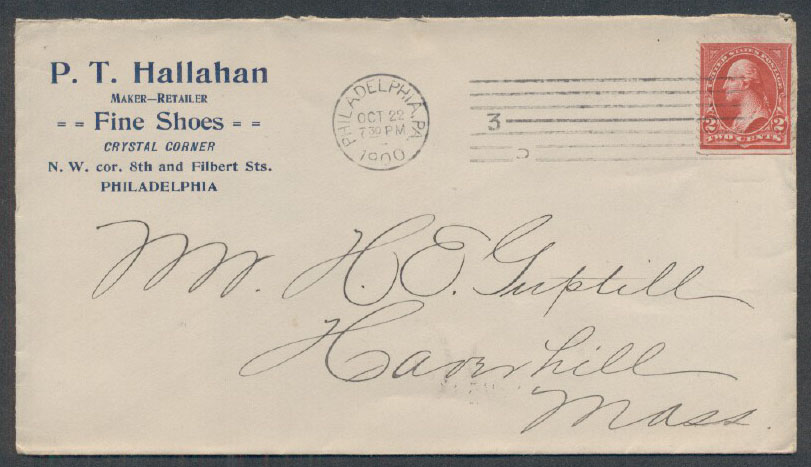 P. T. Hallahan
MAKER—RETAILER
= = Fine Shoes = =
CRYSTAL CORNER
N. W. cor. 8th and Filbert Sts.
PHILADELPHIA
PHILADELPHIA, PA.
OCT 22
7 30 PM
1900
3
UNITED STATES POSTAGE
2 2
TWO CENTS
Mr. H. E. Guptill
Haverhill
Mass.